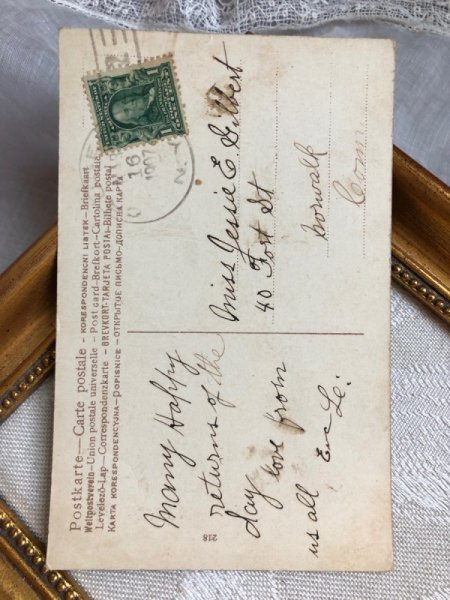 Postkarte — Carte postale — KORESPONDENCNI LISTEK — Briefkaart
Weltpostverein — Union postale universelle — Post card — Brefkort — Cartolina postale
Levelező-Lap — Correspondenzkarte — BREVKORT — TARJETA POSTAL — Bilhete postal
KARTA KORESPONDENCYJNA — DOPISNICE — ОТКРЫТОЕ ПИСЬМО — ДОПИСНА КАРТА
16
1907
N.Y.
Many Happy
returns of the
day love from
us all
Miss Jessie E Gilbert
40 Fort St
Norwalk
Conn
218